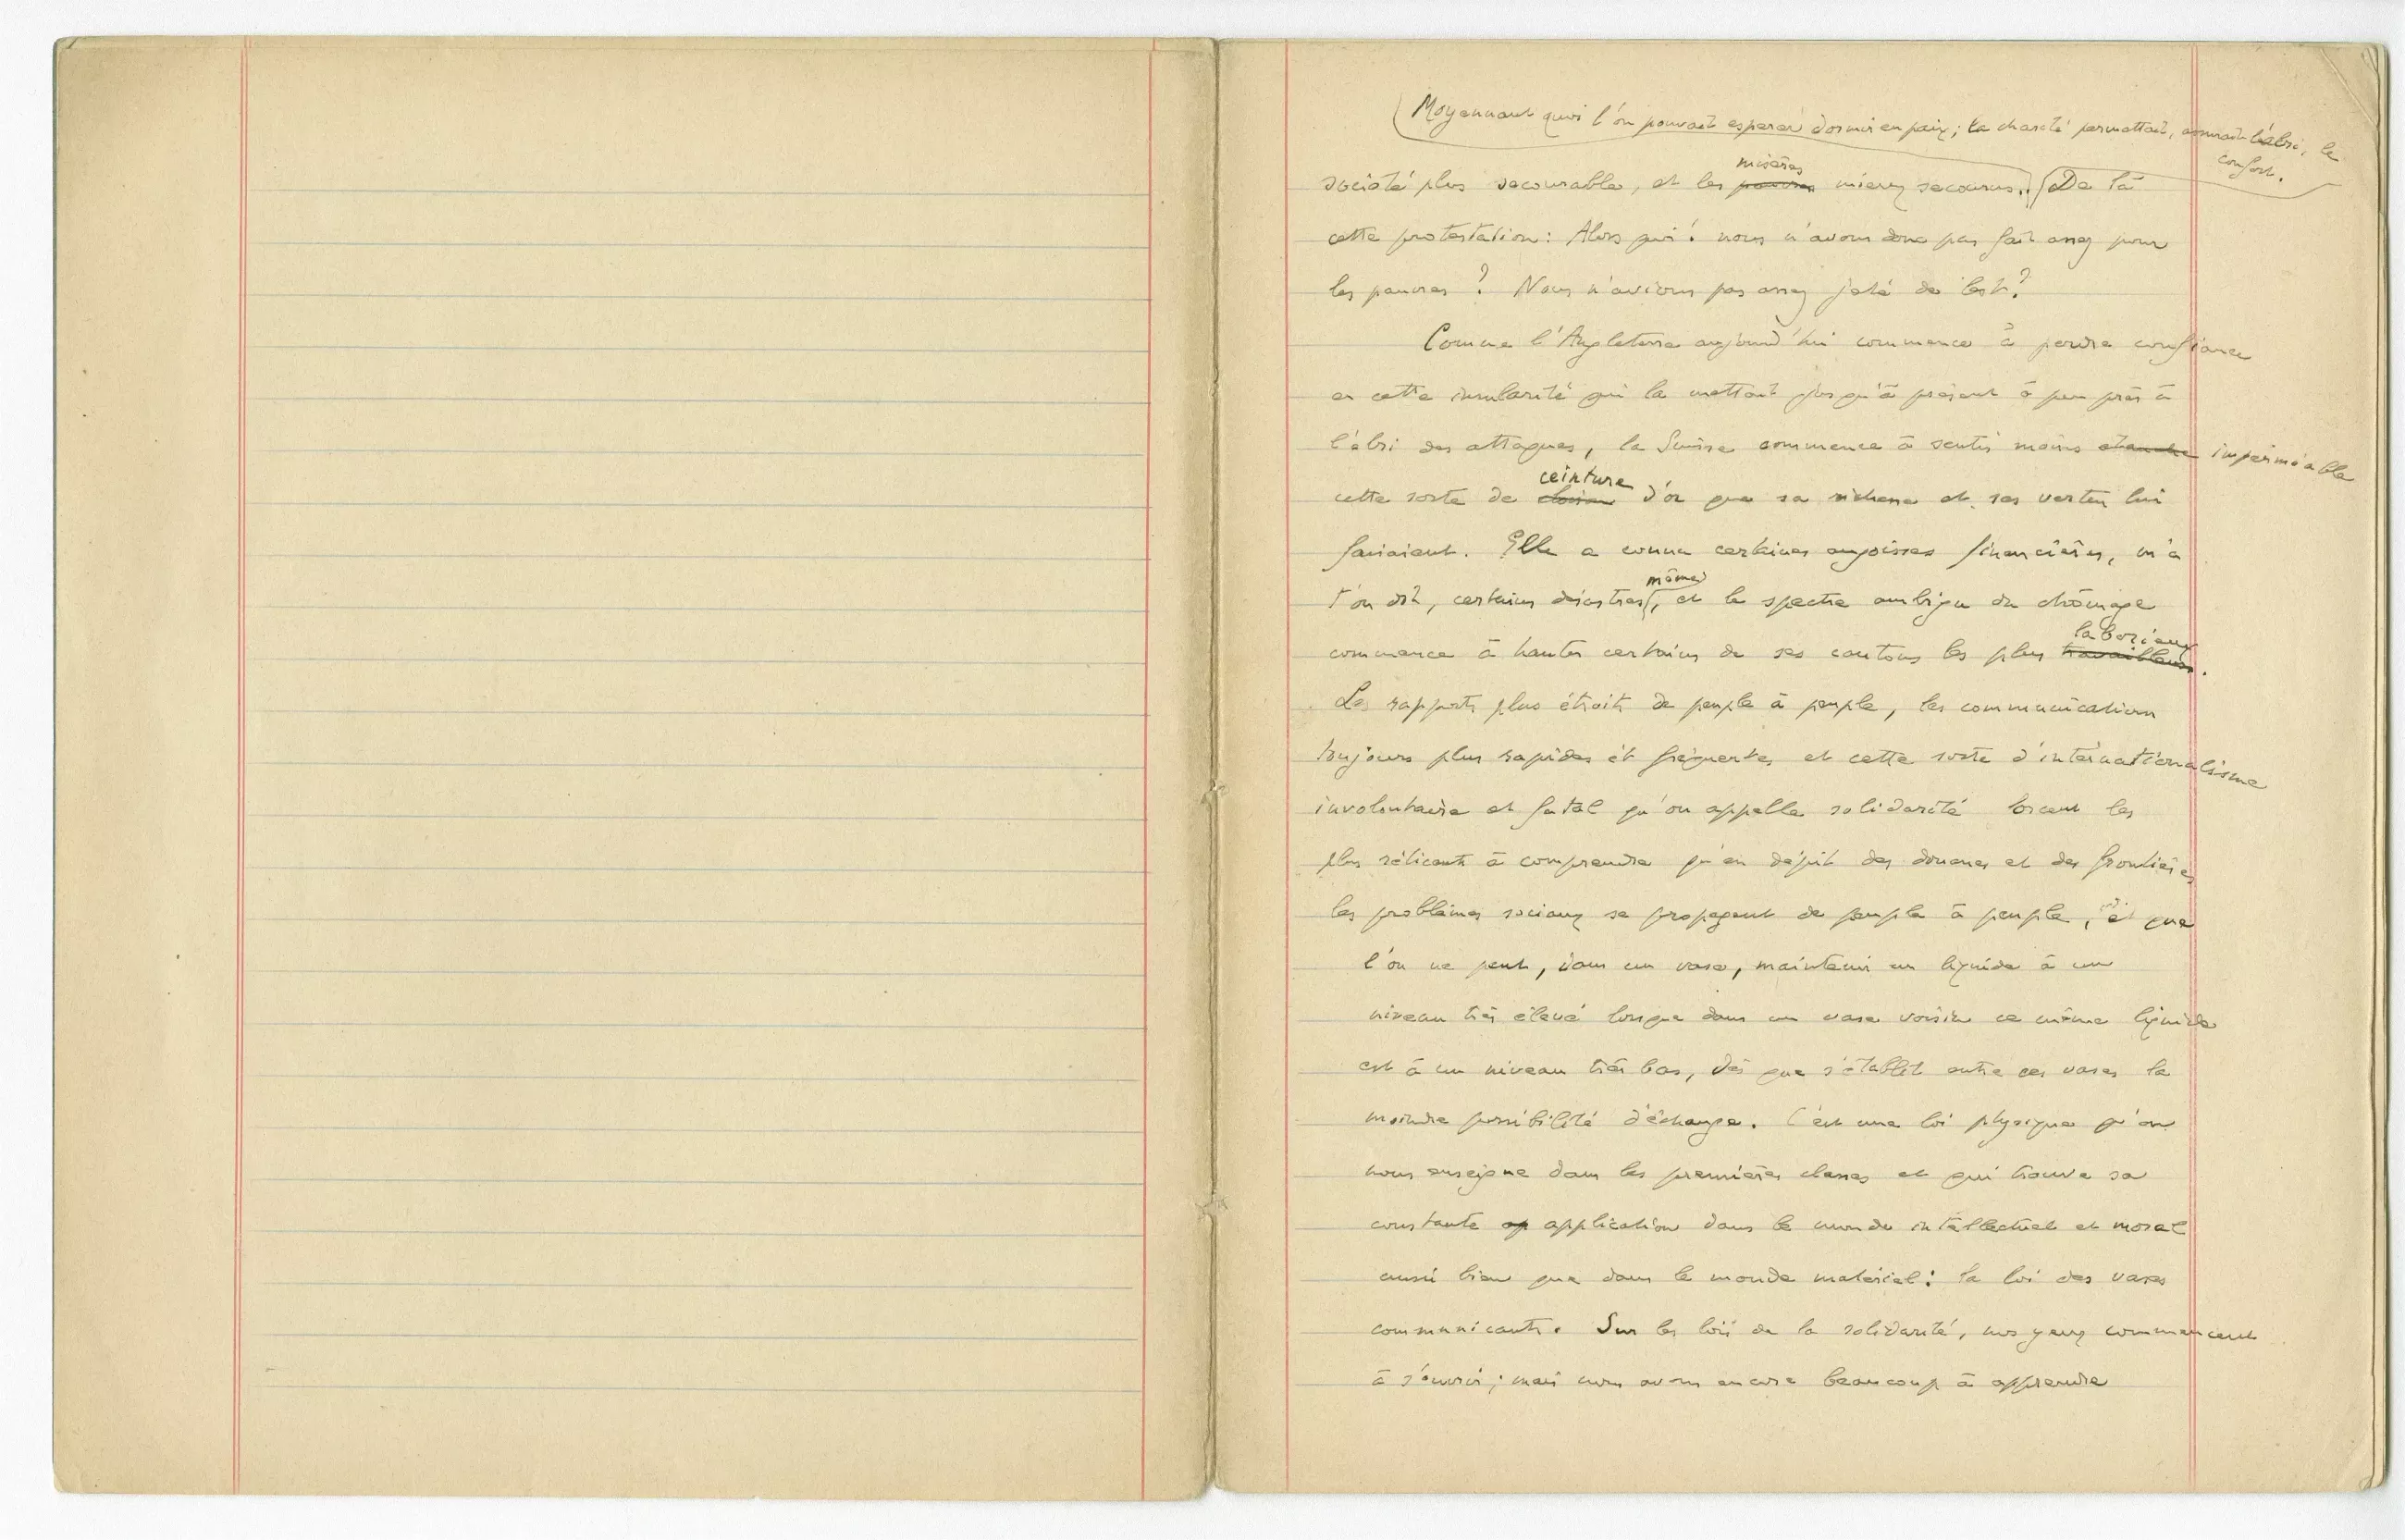 Moyennant quoi l'on pouvait espérer dormir en paix; la charité permettait, assurait l'abri, le
confort.
misères
société plus secourable, et les pauvres mieux secourus. De là
cette protestation: Alors quoi! nous n'avons donc pas fait assez pour
les pauvres? Nous n'avions pas assez jeté de lest?
Comme l'Angleterre aujourd'hui commence à perdre confiance
en cette insularité qui la mettait jusqu'à présent à peu près à
l'abri des attaques, la Suisse commence à sentir moins étanche imperméable
ceinture
cette sorte de cloison d'or que sa richesse et ses vertus lui
faisaient. Elle a connu certaines angoisses financières, m'a
même
t'on dit, certains désastres, et le spectre ambigu du chômage
laborieux
commence à hanter certains de ses cantons les plus travailleurs.
Les rapports plus étroits de peuple à peuple, les communications
toujours plus rapides et fréquentes et cette sorte d'internationalisme
involontaire et fatal qu'on appelle solidarité forcent les
plus réticents à comprendre qu'en dépit des douanes et des frontières
les problèmes sociaux se propagent de peuple à peuple, et que
l'on ne peut, dans un vase, maintenir un liquide à un
niveau très élevé lorsque dans un vase voisin ce même liquide
est à un niveau très bas, dès que s'établit entre ces vases la
moindre possibilité d'échange. C'est une loi physique qu'on
nous enseigne dans les premières classes et qui trouve sa
constante ap application dans le monde intellectuel et moral
aussi bien que dans le monde matériel: la loi des vases
communicants. Sur les lois de la solidarité, nos yeux commencent
à s'ouvrir; mais nous avons encore beaucoup à apprendre